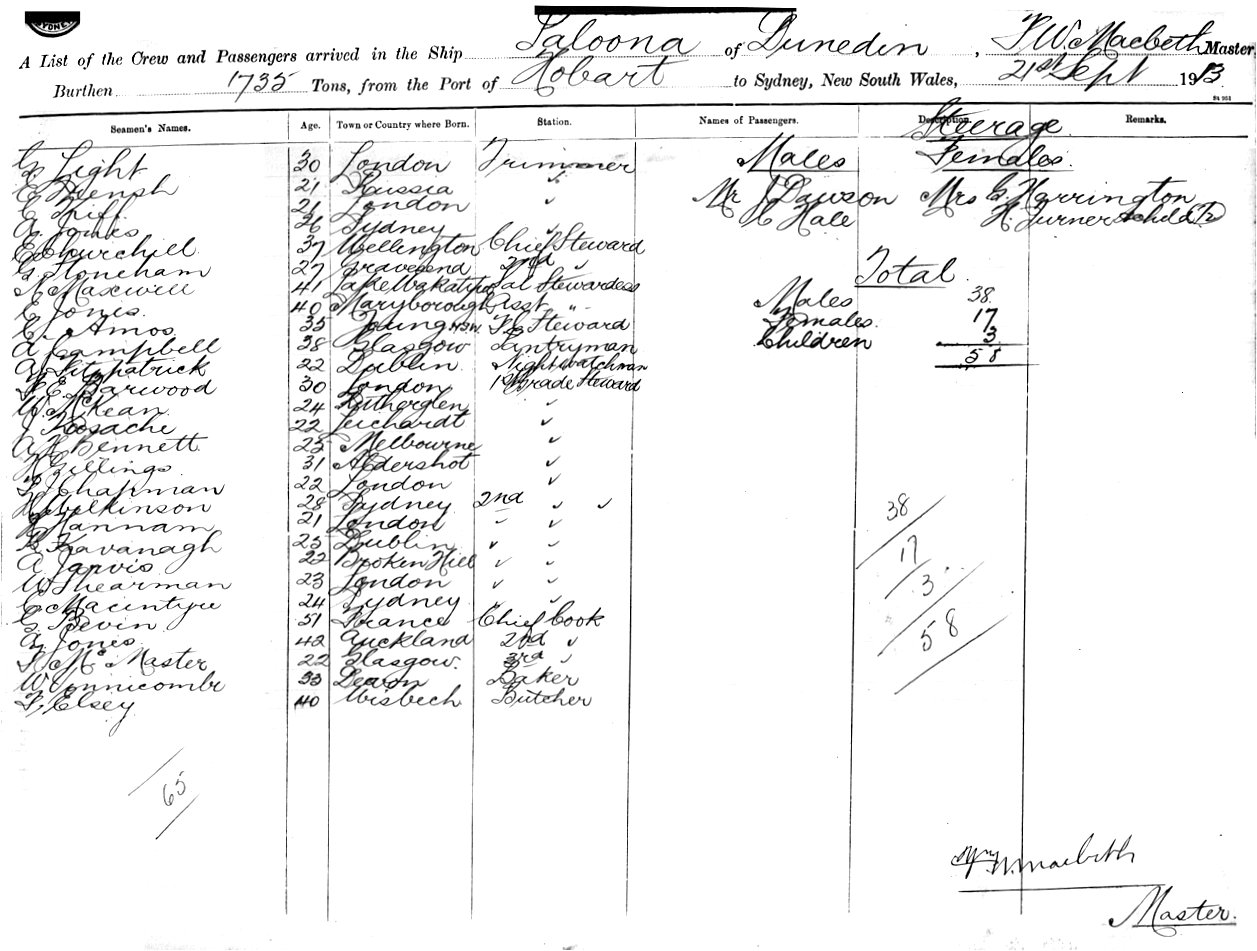 SYDNEY
A List of the Crew and Passengers arrived in the Ship Paloona of Dunedin, P. W. Macbeth Master
Burthen 1735 Tons, from the Port of Hobart to Sydney, New South Wales, 21st Sept 1913
St 951
Seamen's Names. Age. Town or Country where Born. Station. Names of Passengers. Description. Remarks.
Steerage
Males Females
G Light 30 London Trimmer
E 21 Russia "
E 21 London "
A Jones 26 Sydney "
E Churchill 37 Wellington Chief Steward
G Stoneham 27 Gravesend 2nd "
N Maxwell 41 Lake Wakatipu Sal Stewardess
E Jones 40 Maryborough Asst "
E Amos 35 Young NSW. F.C Steward
A Campbell 38 Glasgow Pantryman
A Fitzpatrick 22 Dublin Nightwatchman
F E Barwood 30 London 1st Grade Steward
W McKean 24 Rutherglen "
J 22 Leichardt "
A H Bennett 23 Melbourne "
Gillings 31 Aldershot "
Chapman 22 London "
H Wilkinson 28 Sydney 2nd " "
Hannam 21 London " "
Kavanagh 25 Dublin " "
A Jarvis 22 Broken Hill " "
W Shearman 23 London " "
C Macintyre 24 Sydney " "
G Bevin 51 France Chief Cook
A Jones 42 Auckland 2nd "
McMaster 22 Glasgow. 3rd "
W Vinnicombe 33 Devon Baker
F. Elsey 40 Wisbech Butcher
65
Mr J Dawson Mrs G Harrington
H Hale H. Turner & child
Total
Males 38
Females. 17
Children 3
58
38
17
3
58
W. Macbeth
Master.